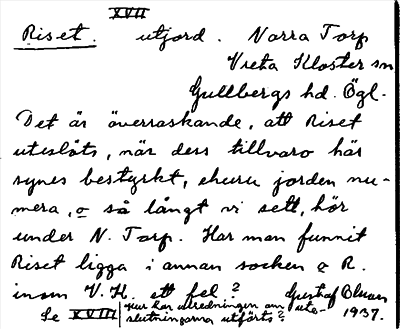 XVII
Riset. utjord. Norra Torp
Vreta Kloster sn
Gullbergs hd. Ögl.
Det är överraskande, att Riset
uteslöts, när dess tillvaro här
synes bestyrkt, ehuru jorden nu-
mera, o så långt vi sett, hör
under N. Torp. Har man funnit
Riset ligga i annan socken o R.
inom V. K. ett fel? Gustaf Olsson
Se XVIII hur har utredningen om ute- 1937.
slutningarna utförts?